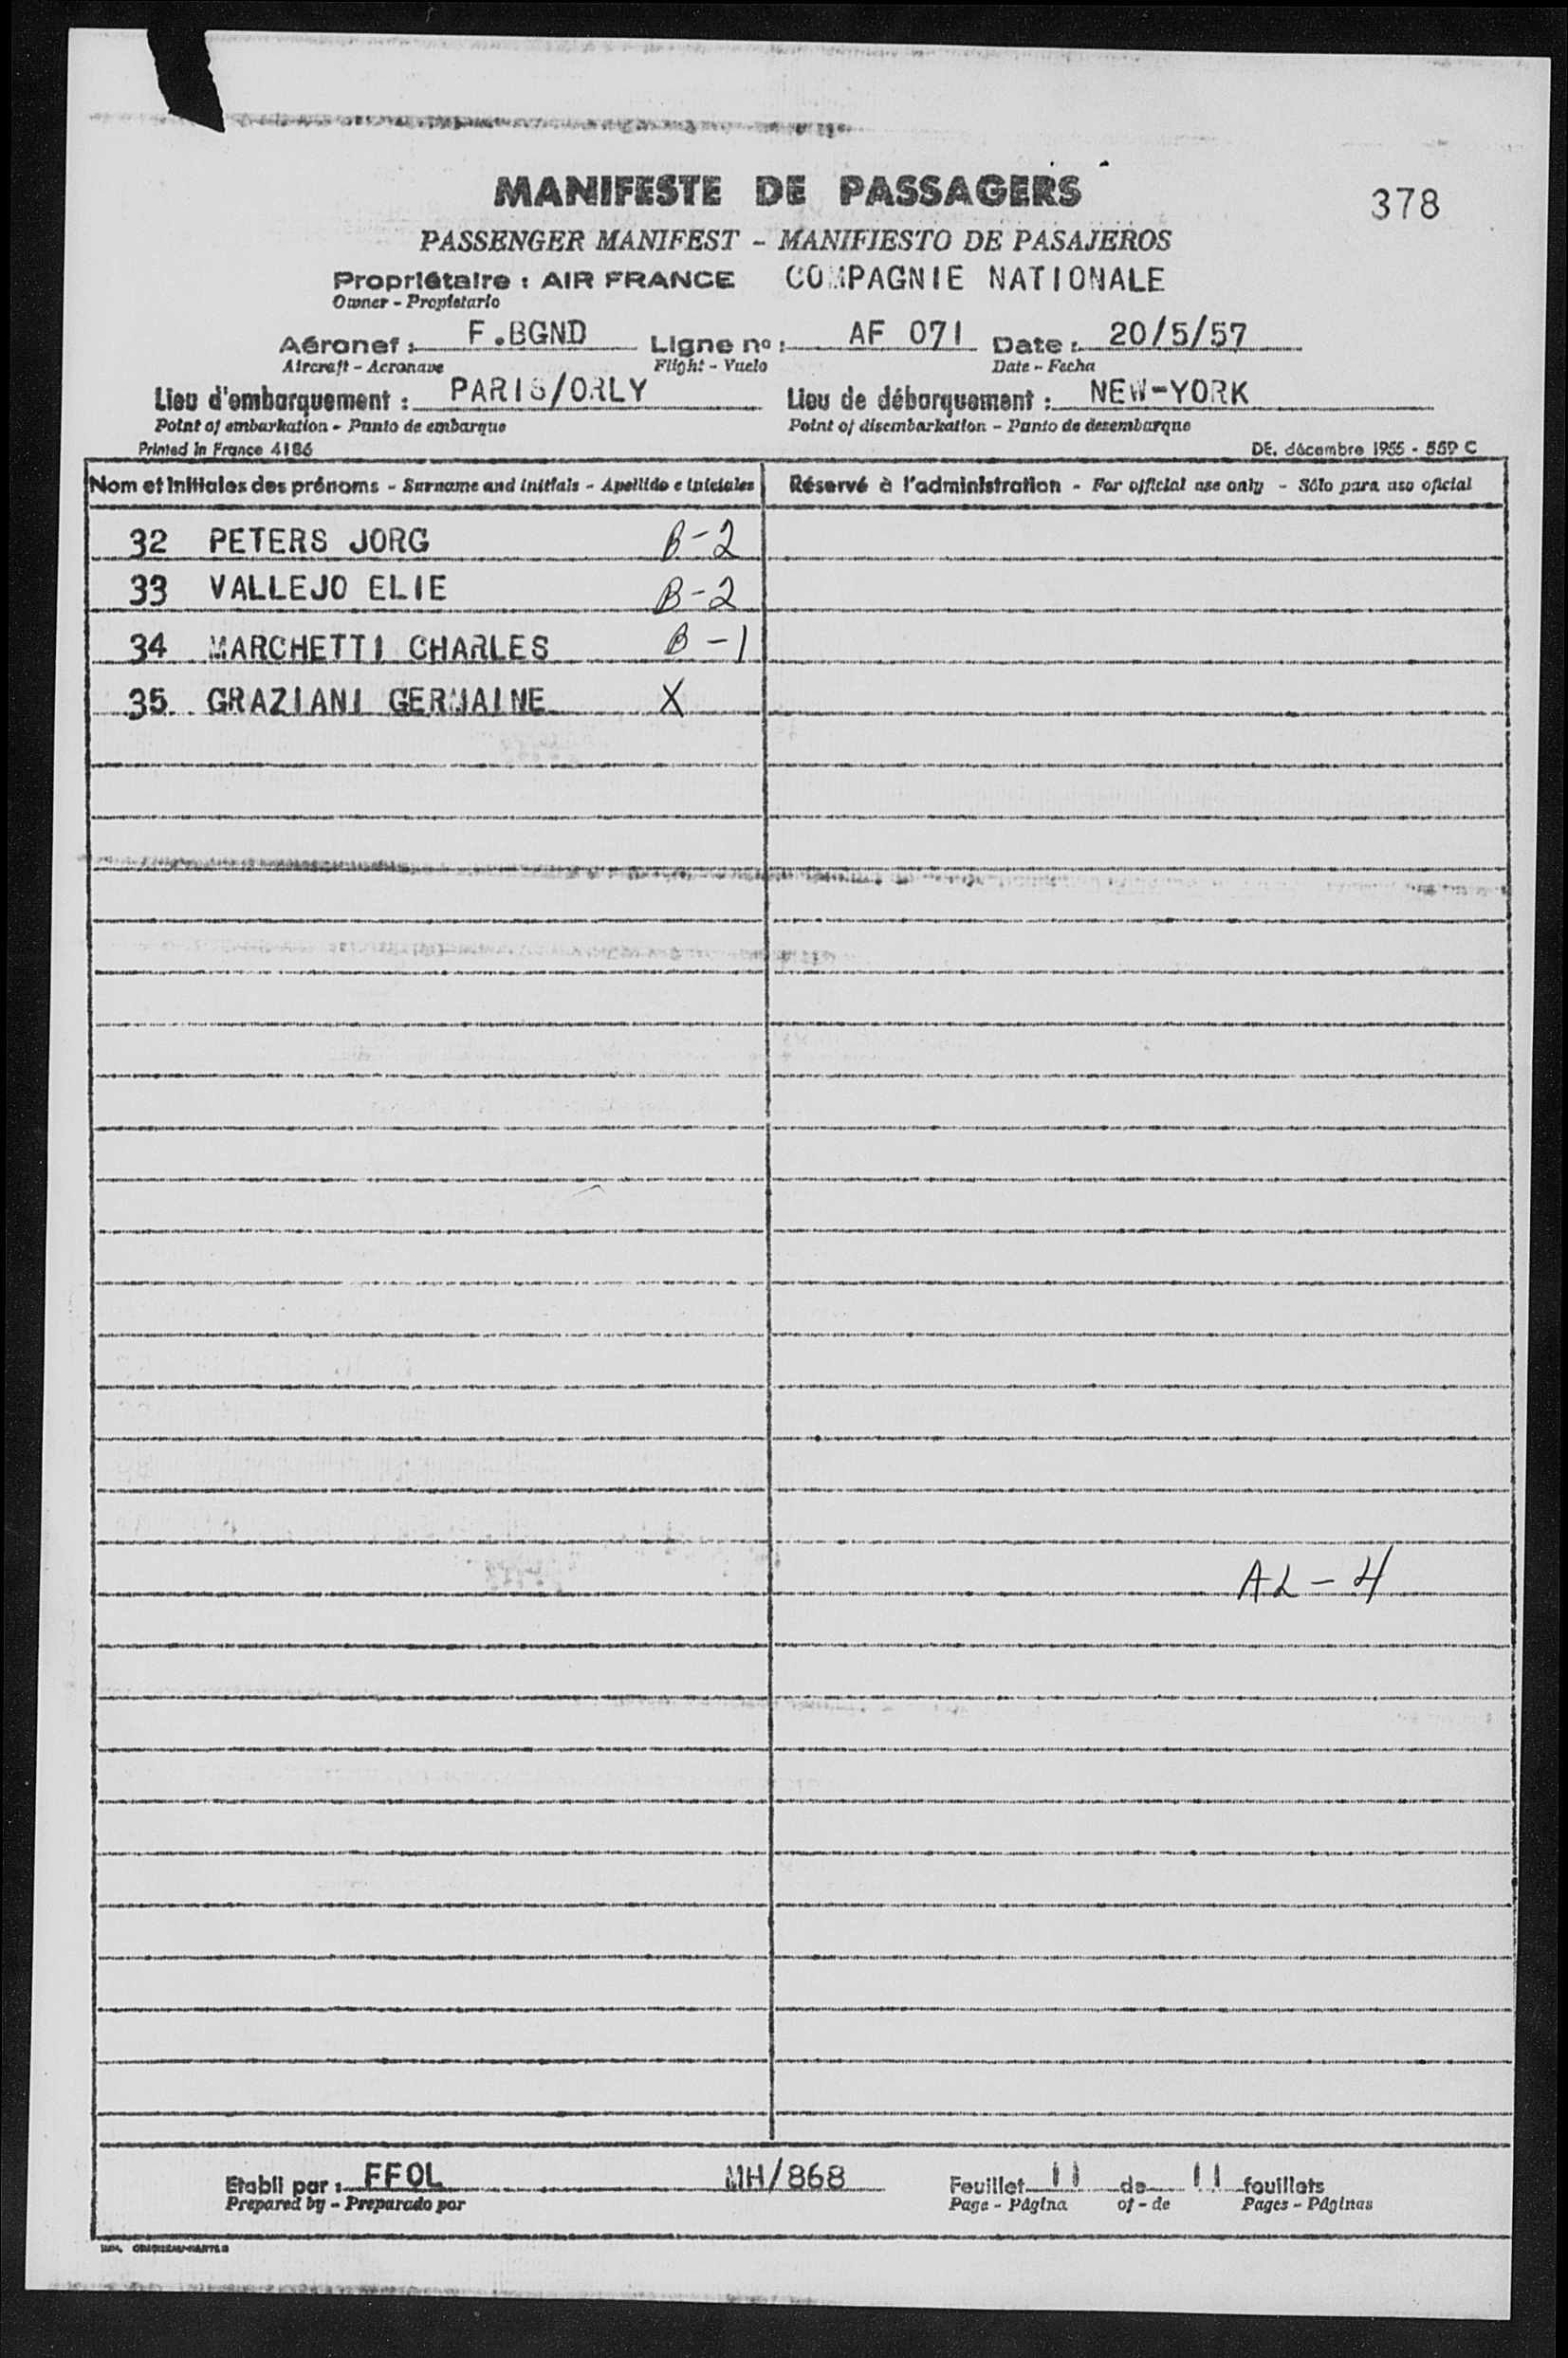 MANIFESTE DE PASSAGERS
378
PASSENGER MANIFEST - MANIFIESTO DE PASAJEROS
Propriétaire : AIR FRANCE COMPAGNIE NATIONALE
Owner - Propietario
Aéronef : F.BGND Ligne nº : AF 071 Date : 20/5/57
Aircraft - Aeronave Flight - Vuelo Date - Fecha
Lieu d'embarquement : PARIS/ORLY Lieu de débarquement : NEW-YORK
Point of embarkation - Punto de embarque Point of disembarkation - Punto de desembarque
Printed in France 4186 DE. décembre 1955 - 559 C
Nom et Initiales des prénoms - Surname and initials - Apellido e iniciales Réservé à l'administration - For official use only - Sólo para uso oficial
32 PETERS JORG B-2
33 VALLEJO ELIE B-2
34 MARCHETTI CHARLES B-1
35. GRAZIANI GERMAINE X
AL-4
Etabli par : FFOL MH/868 Feuillet 11 de 11 feuillets
Prepared by - Preparado por Page - Página of - de Pages - Páginas